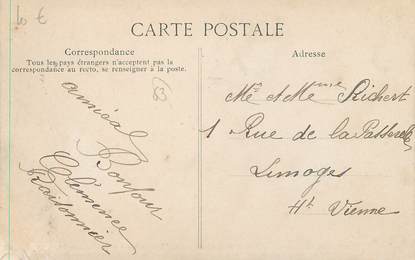 10 €
CARTE POSTALE
Correspondance
Tous les pays étrangers n'acceptent pas la
correspondance au recto, se renseigner à la poste.
Adresse
63
amical
Bonjour
Clémence
Mr et Mme Richert
1 Rue de la Passerelle
Limoges
Hte Vienne